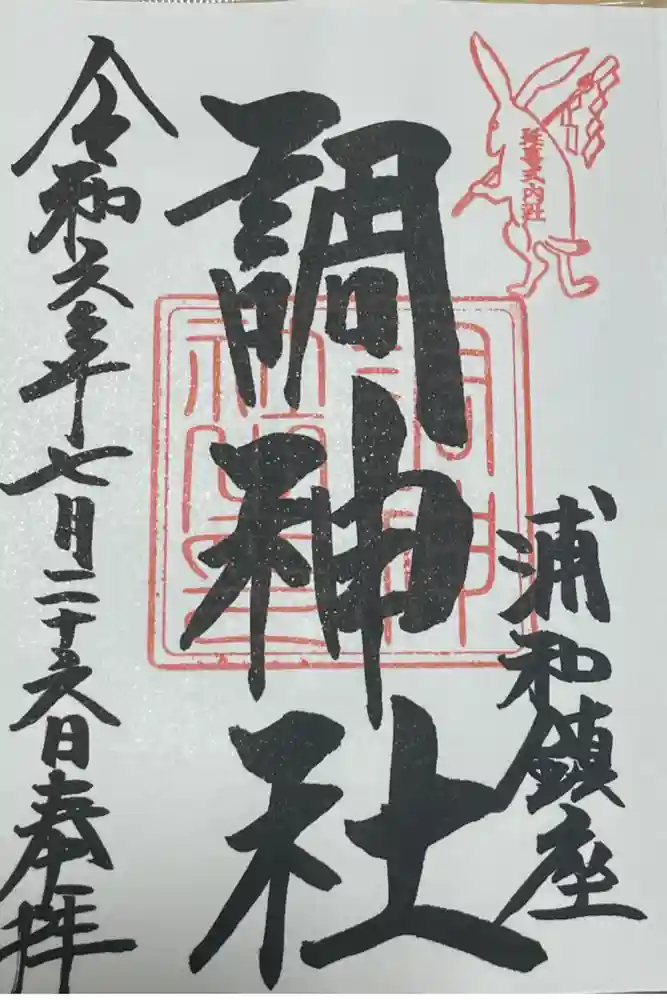 延喜式内社
浦和鎮座
調神社
令和六年七月二十六日奉拝